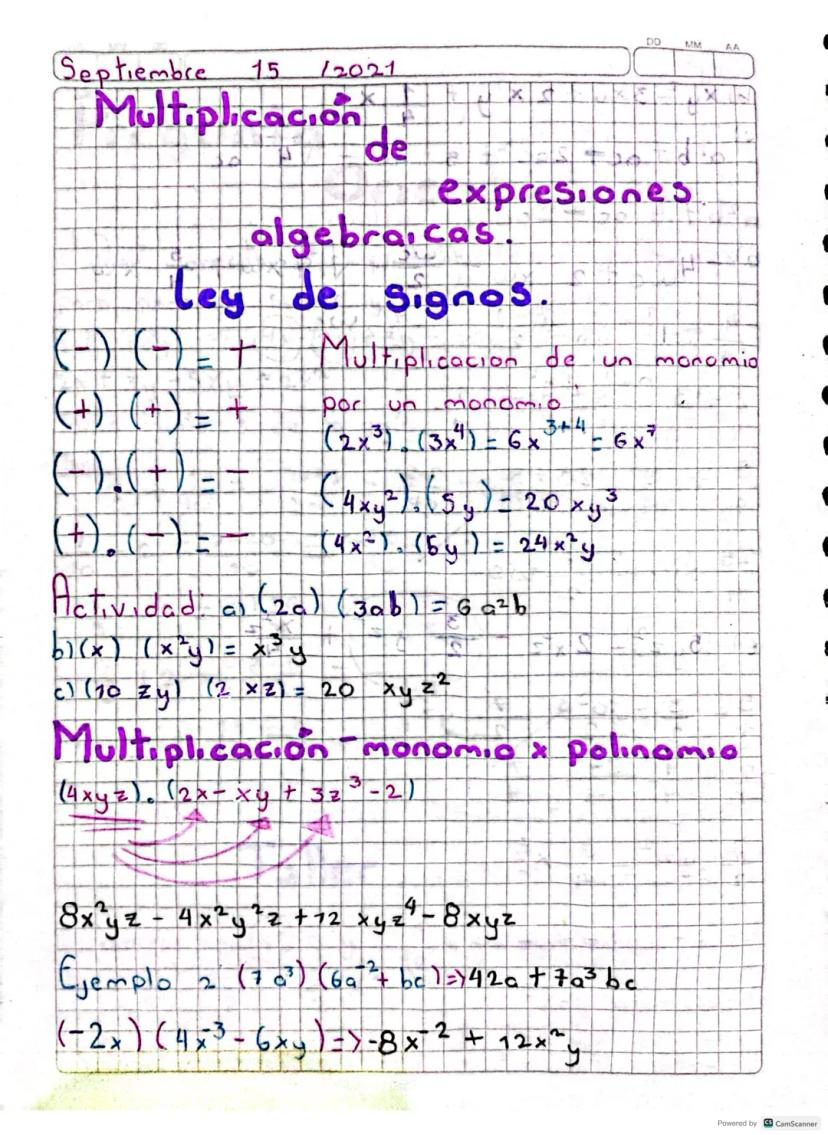 DD MM AA
Septiembre 15 /2021
Multiplicación
de
expresiones
algebraicas.
Ley de signos.
(-) (-) = +
(+) (+) = +
(-).(+) = -
(+).(-) = -
Multiplicacion de un monomio
por un monomio
(2x³).(3x⁴) = 6x³⁺⁴ = 6x⁷
(4xy²).(5y) = 20 xy³
(4x²).(6y) = 24x²y
Actividad: a) (2a) (3ab) = 6a²b
b) (x) (x²y) = x³y
c) (10 zy) (2 xz) = 20 xyz²
Multiplicación - monomio x polinomio
(4xyz).(2x - xy + 3z³ - 2)
8x²yz - 4x²y²z + 12 xyz⁴ - 8xyz
Ejemplo 2 (7a³) (6a⁻² + bc) => 42a + 7a³bc
(-2x) (4x⁻³ - 6xy) => -8x⁻² + 12x²y
Powered by CS CamScanner